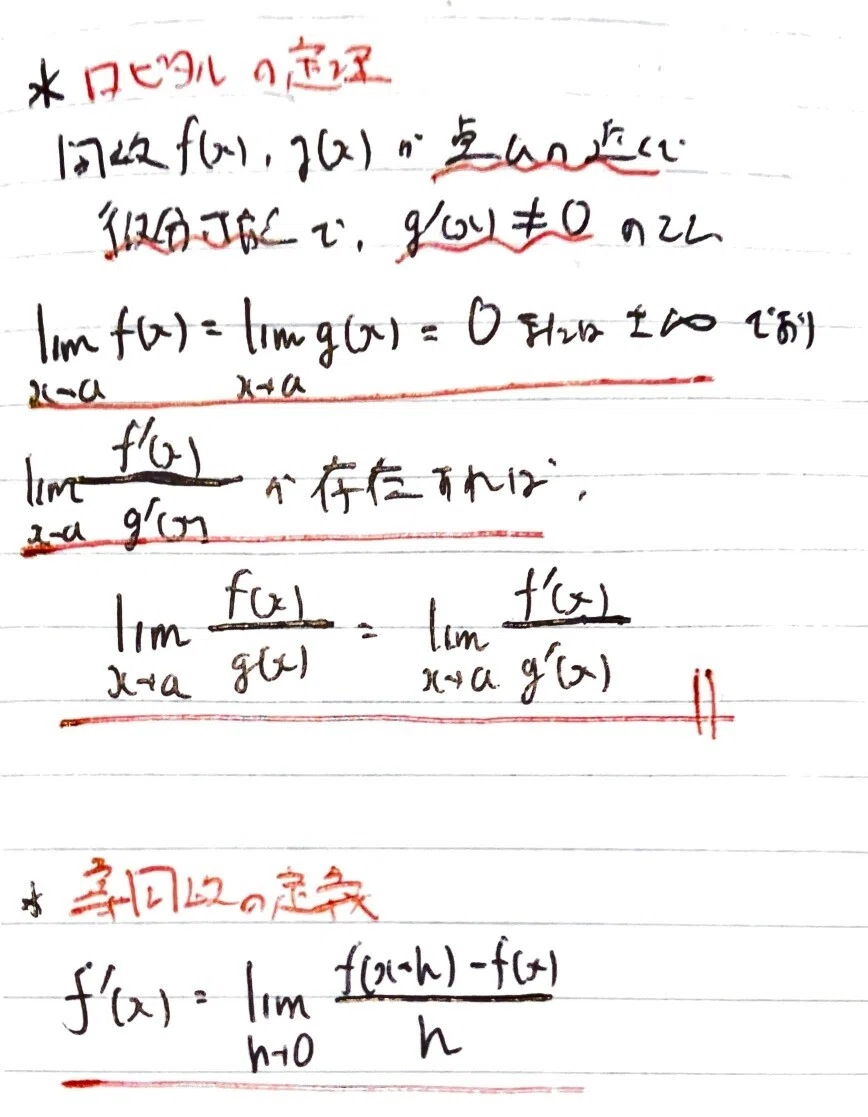 * ロピタルの定理
関数 f(x), g(x) が 点aの近くで
微分可能で, g'(x) ≠ 0 のとき
lim_{x→a} f(x) = lim_{x→a} g(x) = 0 または ±∞ であり
lim_{x→a} f'(x)/g'(x) が存在すれば,
lim_{x→a} f(x)/g(x) = lim_{x→a} f'(x)/g'(x)
* 導関数の定義
f'(x) = lim_{h→0} (f(x+h)-f(x))/h